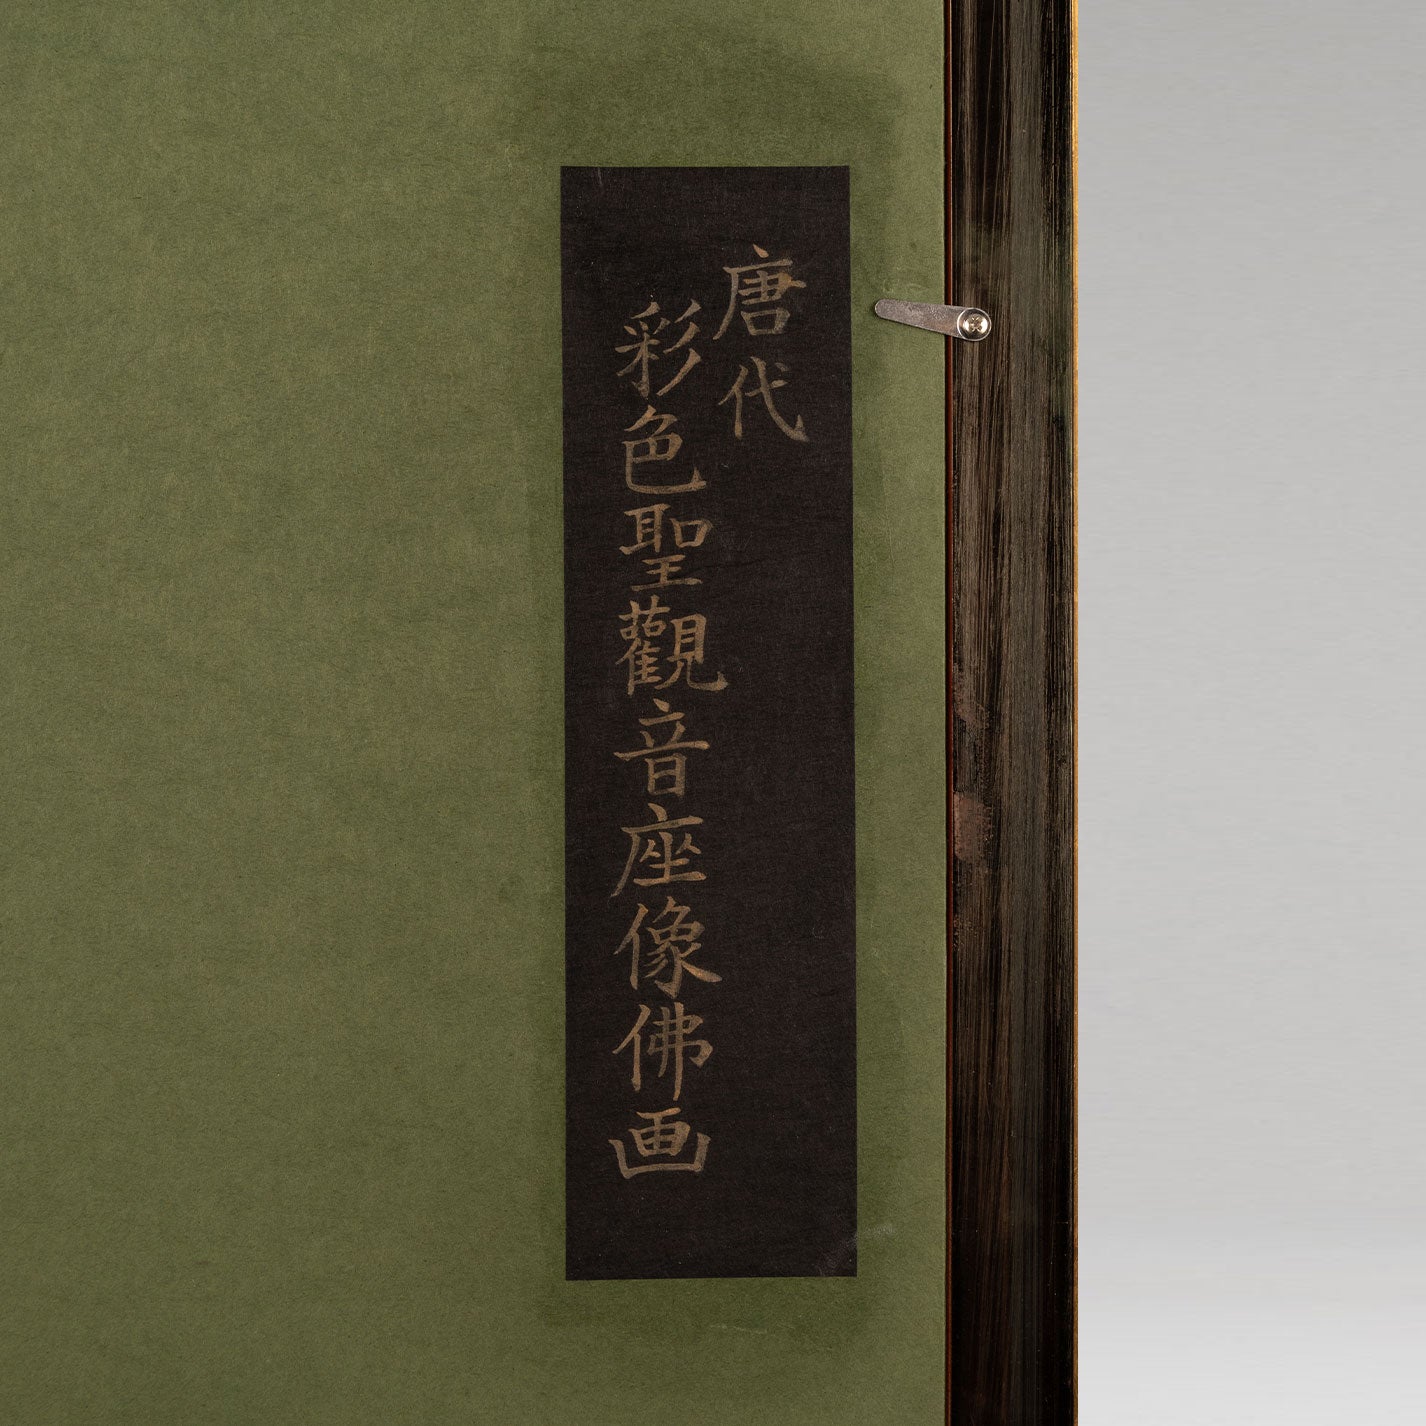 唐代
彩色聖觀音座像佛画